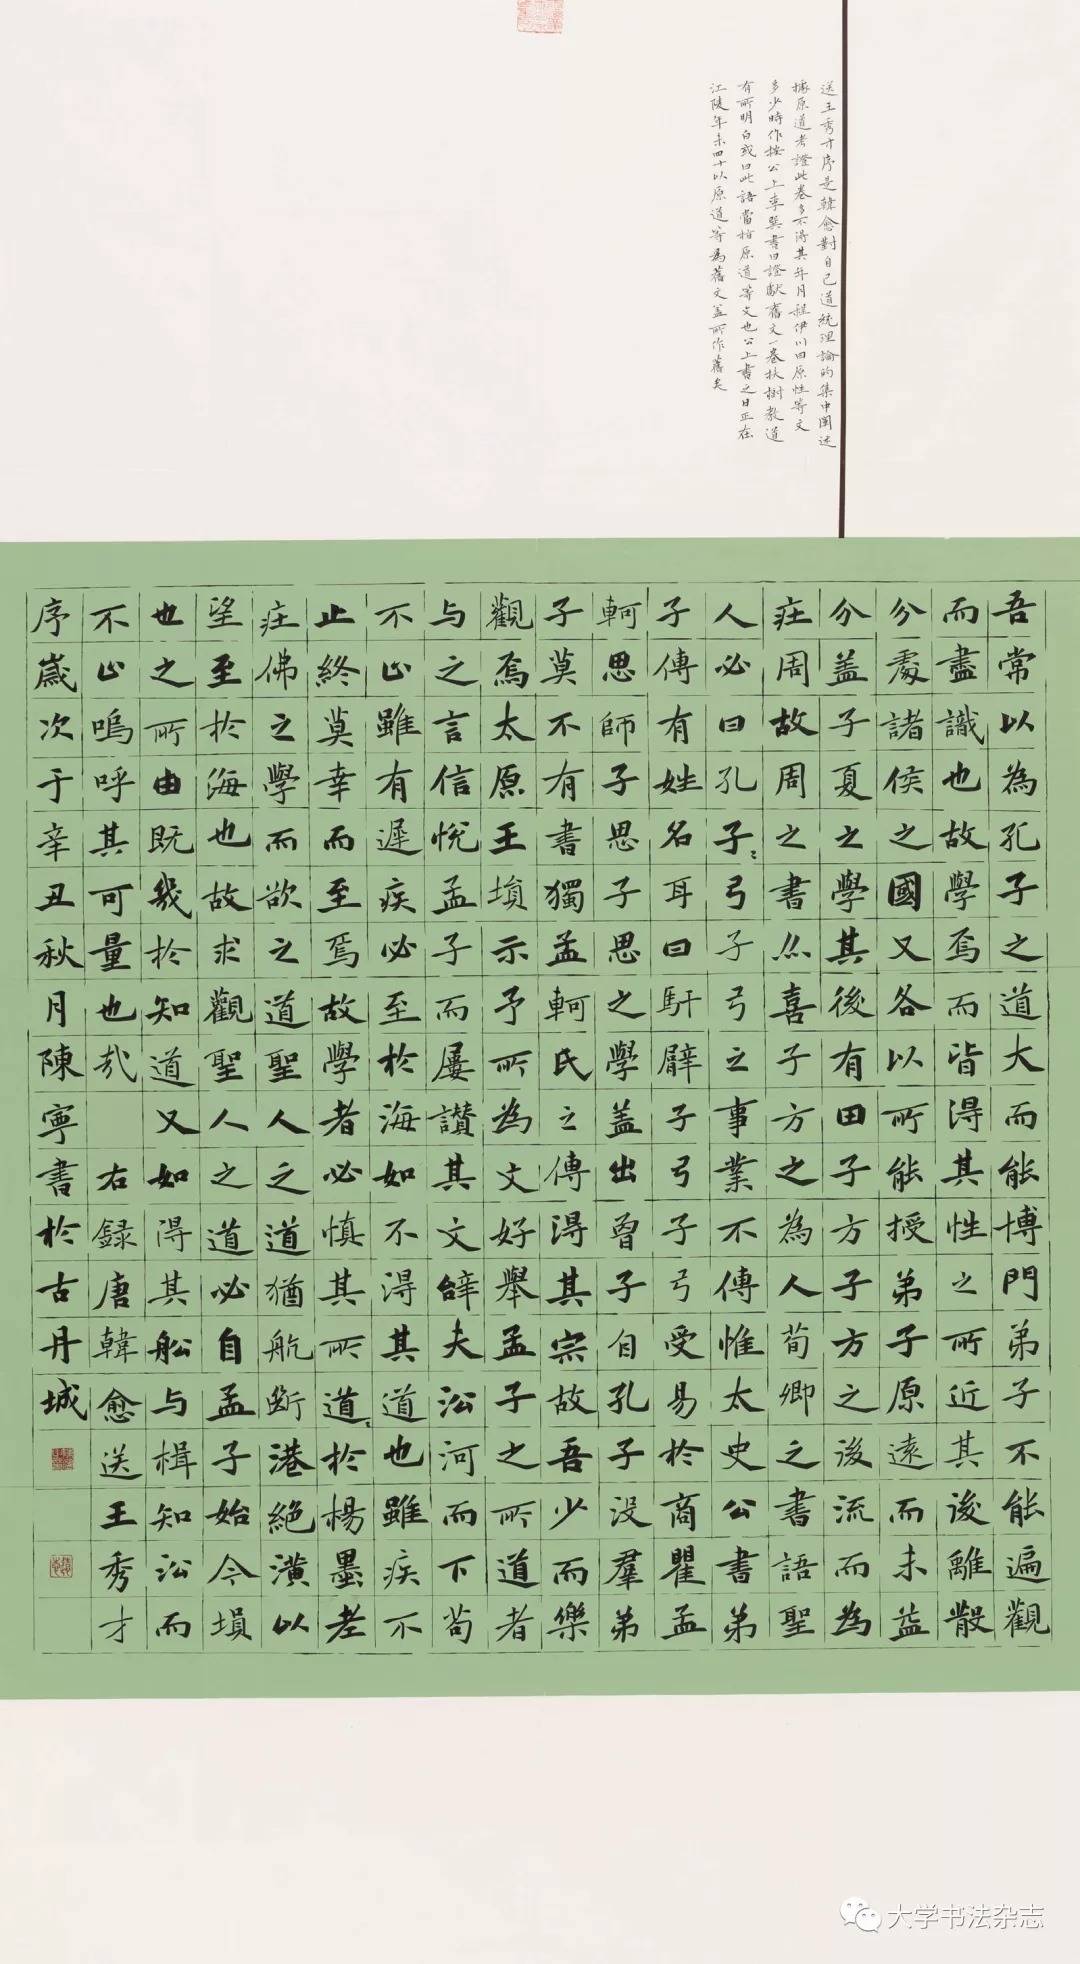 送王秀才序是韓愈對自己道統理論的集中闡述
據原道考證此卷多不得其年月程伊川曰原性等文
多少時作按公上李巽書曰證獻舊文一卷扶樹教道
有所明白或曰此語當指原道等文也公上書之日正在
江陵年未四十以原道等為舊文盖所作舊矣
吾常以為孔子之道大而能博門弟子不能遍觀
而盡識也故學焉而皆得其性之所近其後離散
分處諸侯之國又各以所能授弟子原遠而未益
分盖子夏之學其後有田子方子方之後流而為
庄周故周之書喜子方之為人荀卿之書語聖
人必曰孔子〻弓子弓之事業不傳惟太史公書弟
子傳有姓名耳曰馯臂子弓子弓受易於商瞿孟
軻思師子思子思之學盖出曾子自孔子没羣弟
子莫不有書獨孟軻氏之傳得其宗故吾少而樂
觀焉太原王塤示予所為文好舉孟子之所道者
与之言信悦孟子而屡讃其文辭夫沿河而下苟
不止雖有遲疾必至於海如不得其道也雖疾不
止終莫幸而至焉故學者必慎其所道〻於楊墨老
庄佛之學而欲之道聖人之道猶航断港絶潢以
望至於海也故求觀聖人之道必自孟子始今塤
也之所由既幾於知道又如得其船与楫知沿而
不止嗚呼其可量也哉 右録唐韓愈送王秀才
序歲次于辛丑秋月陳寧書於古丹城
大学书法杂志